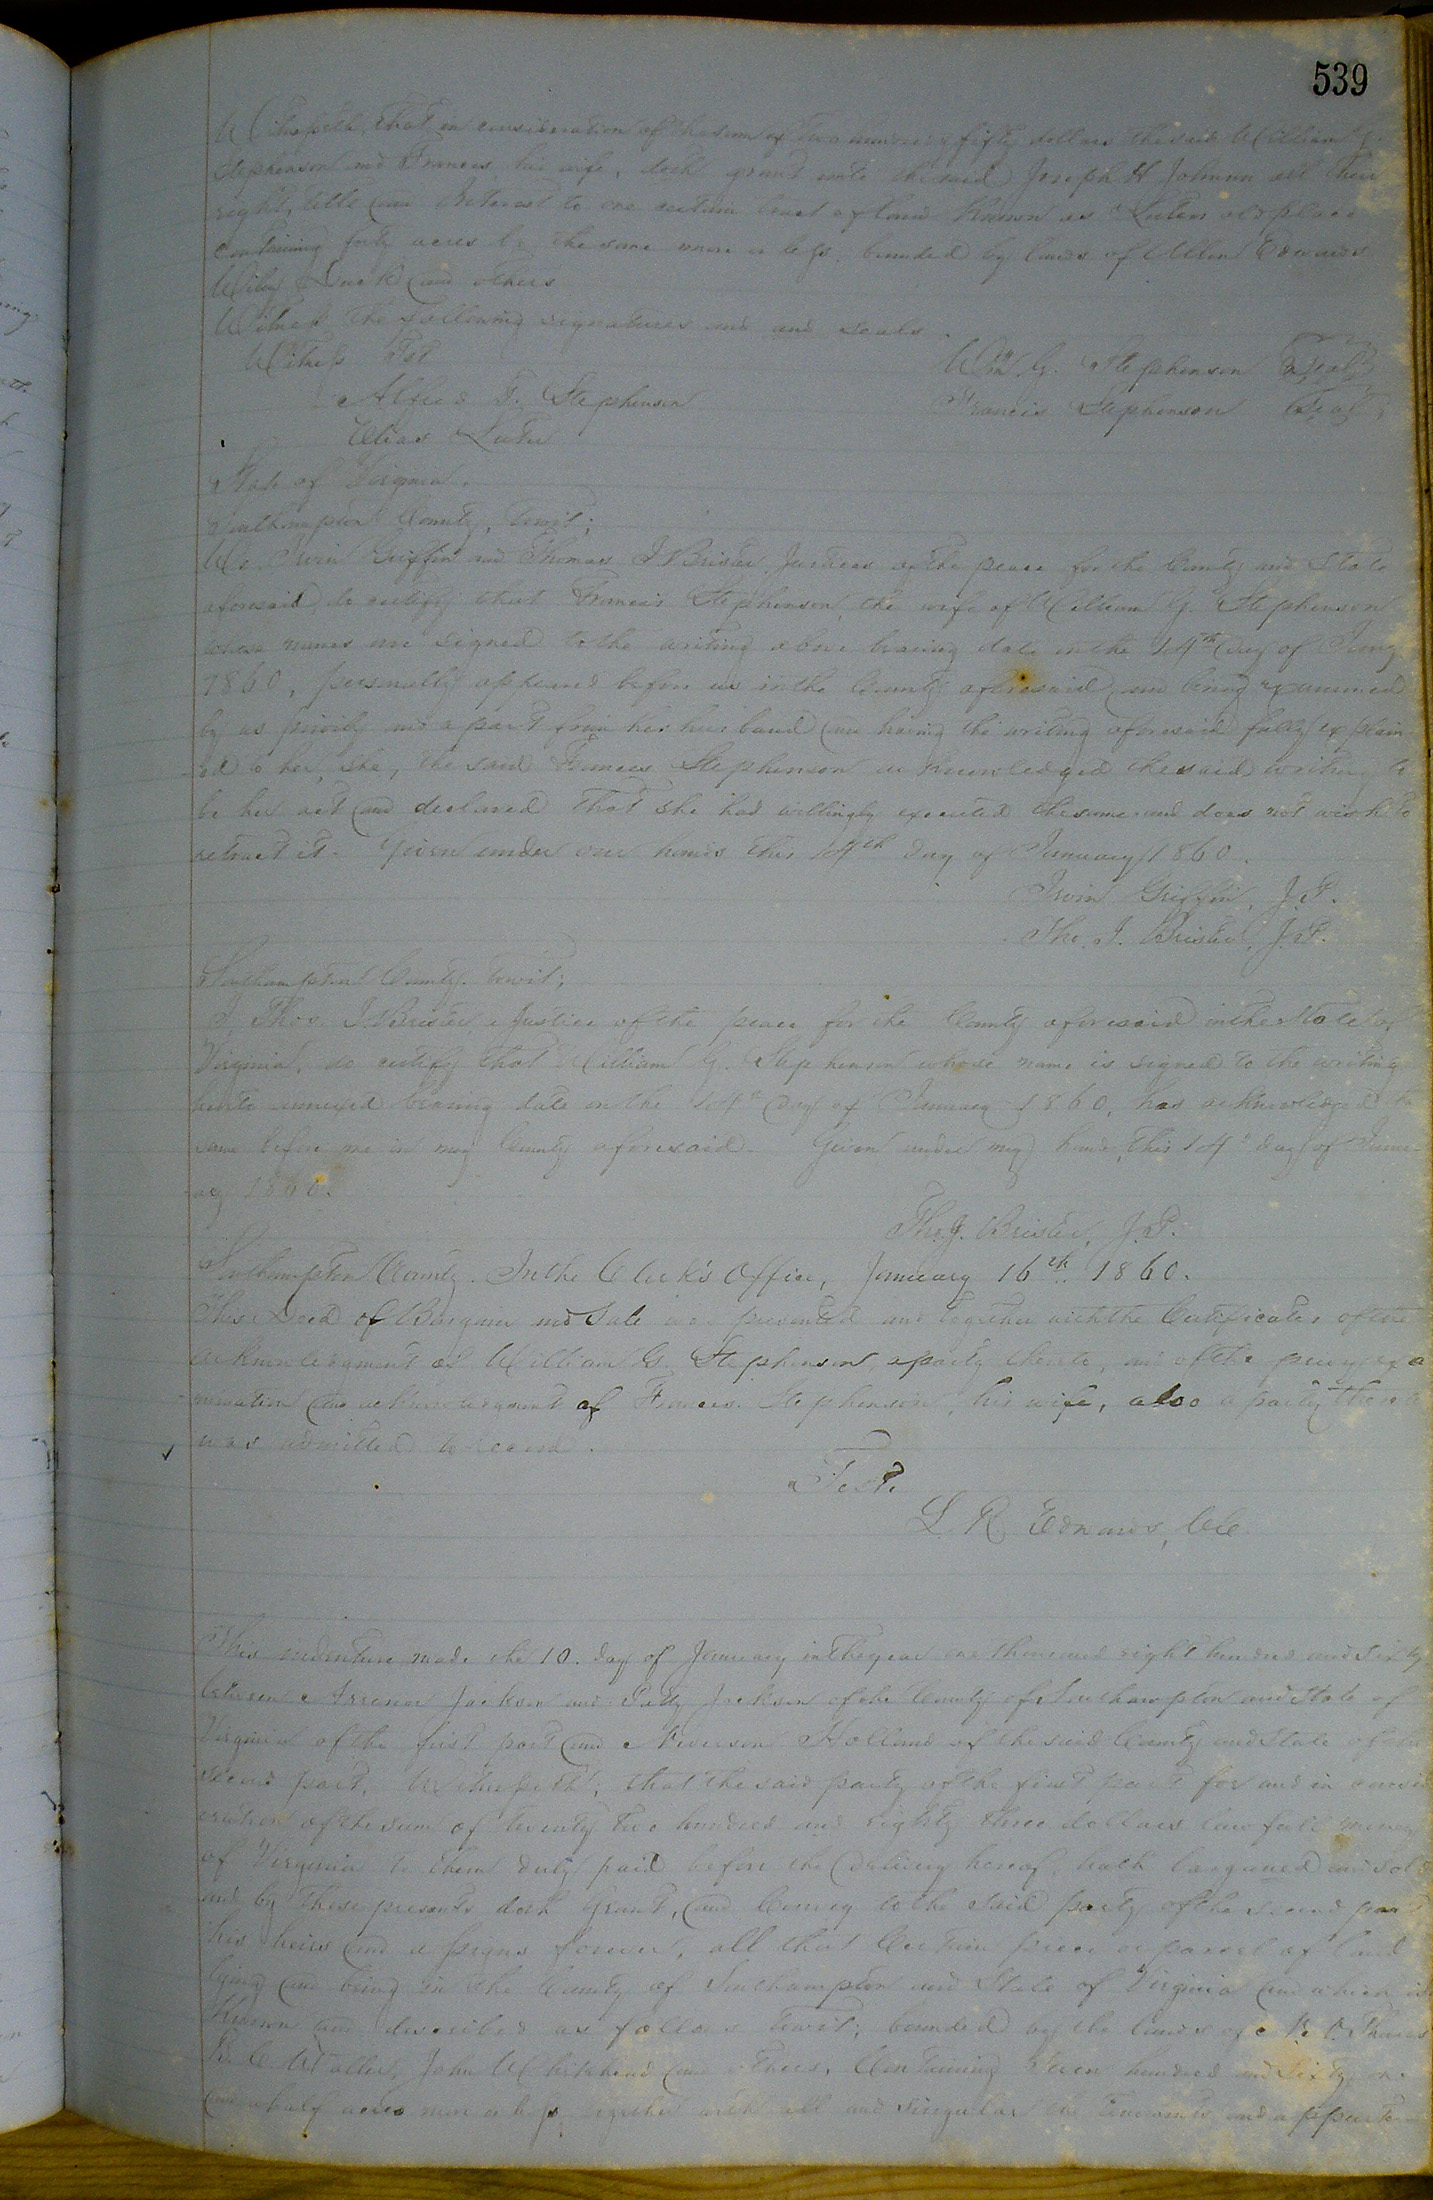 539
Witnesseth, that in consideration of the sum of two hundred & fifty dollars the said William G.
Stephenson and Frances, his wife, doth grant unto the said Joseph H Johnson all their
right, title and interest to one certain tract of land known as Luters old place
containing forty acres be the same more or less, bounded by lands of Allen Edwards
and others
Witness the following signatures and and seals.
Witness Test
Wm. G. Stephenson Seal
Alfred T. Stephenson
Francis Stephenson Seal
Elias Luter
State of Virginia.
Southampton County, towit;
We, Irvin Griffin and Thomas J. Brister, Justices of the peace for the County and State
aforesaid, do certify that Frances Stephenson, the wife of William G. Stephenson
whose names are signed to the writing above bearing date on the 14th day of Jany
1860, personally appeared before us in the County aforesaid, and being examined
by us privily and apart from her husband and having the writing aforesaid fully explain
ed to her, she, the said Frances Stephenson acknowledged the said writing to
be her act and declared that she had willingly executed the same and does not wish to
retract it. Given under our hands this 14th day of January 1860.
Irvin Griffin, J.P.
Tho. J. Brister, J.P.
Southampton County. towit;
I, Thos. J. Brister, a Justice of the peace for the County aforesaid in the State of
Virginia, do certify that William G. Stephenson whose name is signed to the writing
hereto annexed bearing date on the 14th day of January 1860, has acknowledged the
same before me in my County aforesaid. Given under my hand, this 14th day of Janu-
ary 1860.
Tho. J. Brister, J.P.
Southampton County. In the Clerk's Office, January 16th. 1860.
This Deed of Bargain and Sale was presented and together with the Certificates of the
acknowledgment of William G. Stephenson, a party thereto, and of the privy exa
mination and acknowledgment of Frances Stephenson, his wife, also a party thereto
was admitted to record.
Test.
L. R. Edwards, Clk.
This indenture made the 10. day of January in the year one thousand eight hundred and sixty
between Jackson and Patty Jackson of the County of Southampton and State of
Virginia of the first part and Holland of the said County and State of the
second part, Witnesseth; that the said party of the first part for and in consid
eration of the sum of twenty two hundred and eighty three dollars lawfull money
of Virginia to them duly paid before the delivery hereof, hath bargained and sold
and by these presents doth Grant, and Convey to the said party of the second part
his heirs and assigns forever, all that Certain piece or parcel of land
lying and being in the County of Southampton and State of Virginia and which is
Known and described as follows towit; bounded by the lands of
B. C. John Whitehead and others, Containing Seven hundred and sixty one
and a half acres more or less, together with all and singular the tenements and appurte